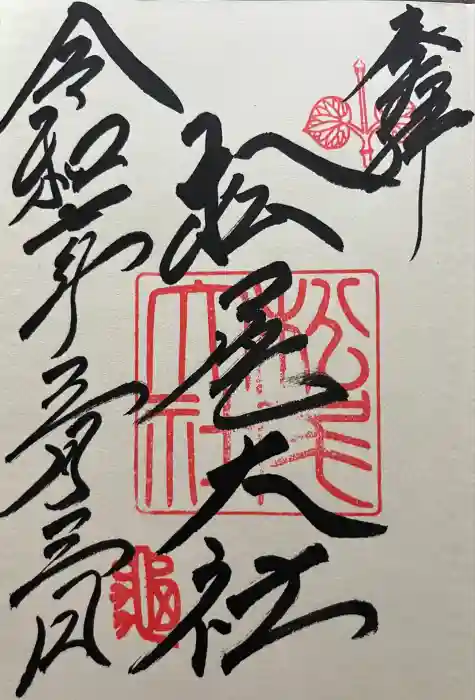 奉拝
松尾大社
令和六年三月三日
松尾大社
亀